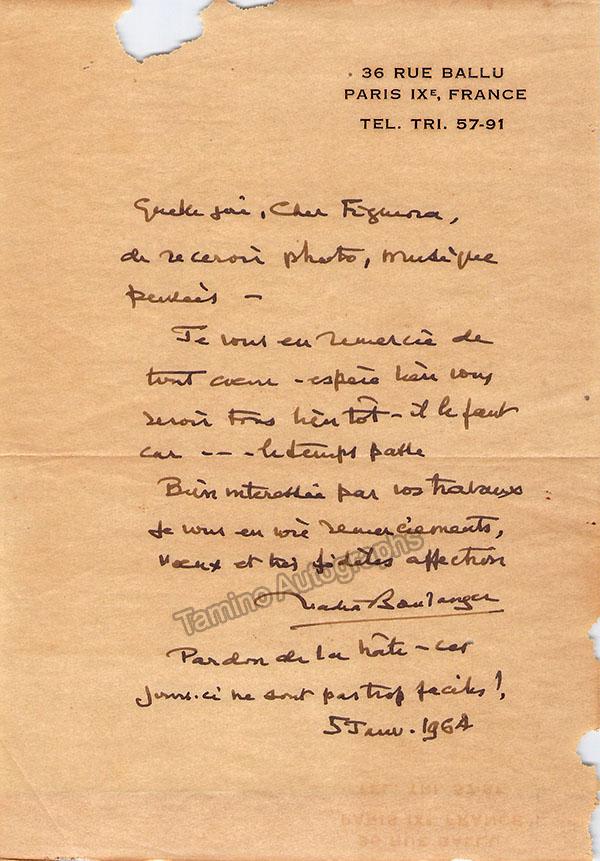 36 RUE BALLU
PARIS IXE, FRANCE
TEL. TRI. 57-91
Quelle joie, Cher Figueroa,
de recevoir photo, musique
pensées –
Je vous en remercie de
tout cœur – espère bien vous
revoir tous bientôt – il le faut
car – – – le temps passe
Bien intéressée par vos travaux
Je vous envoie remerciements,
vœux et très fidèles affection
Nadia Boulanger
Pardon de la hâte – ces
jours-ci ne sont pas trop faciles!
5 Janv. 1964
Tamino Autographs